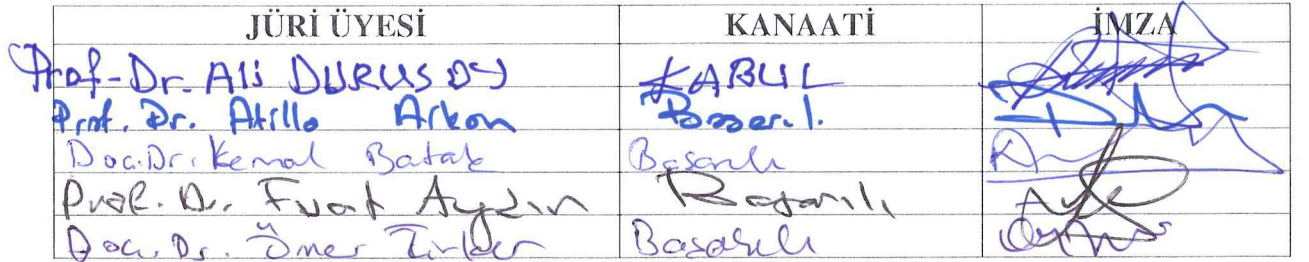 JÜRİ ÜYESİ KANAATİ İMZA
Prof-Dr. Ali DURUSOY KABUL
Prof. Dr. Atilla Arkan Başarılı
Doc.Dr. Kemal Batak Başarılı
Prof. Dr. Fuat Aydın Başarılı
Doc. Dr. Ömer Türker Başarılı